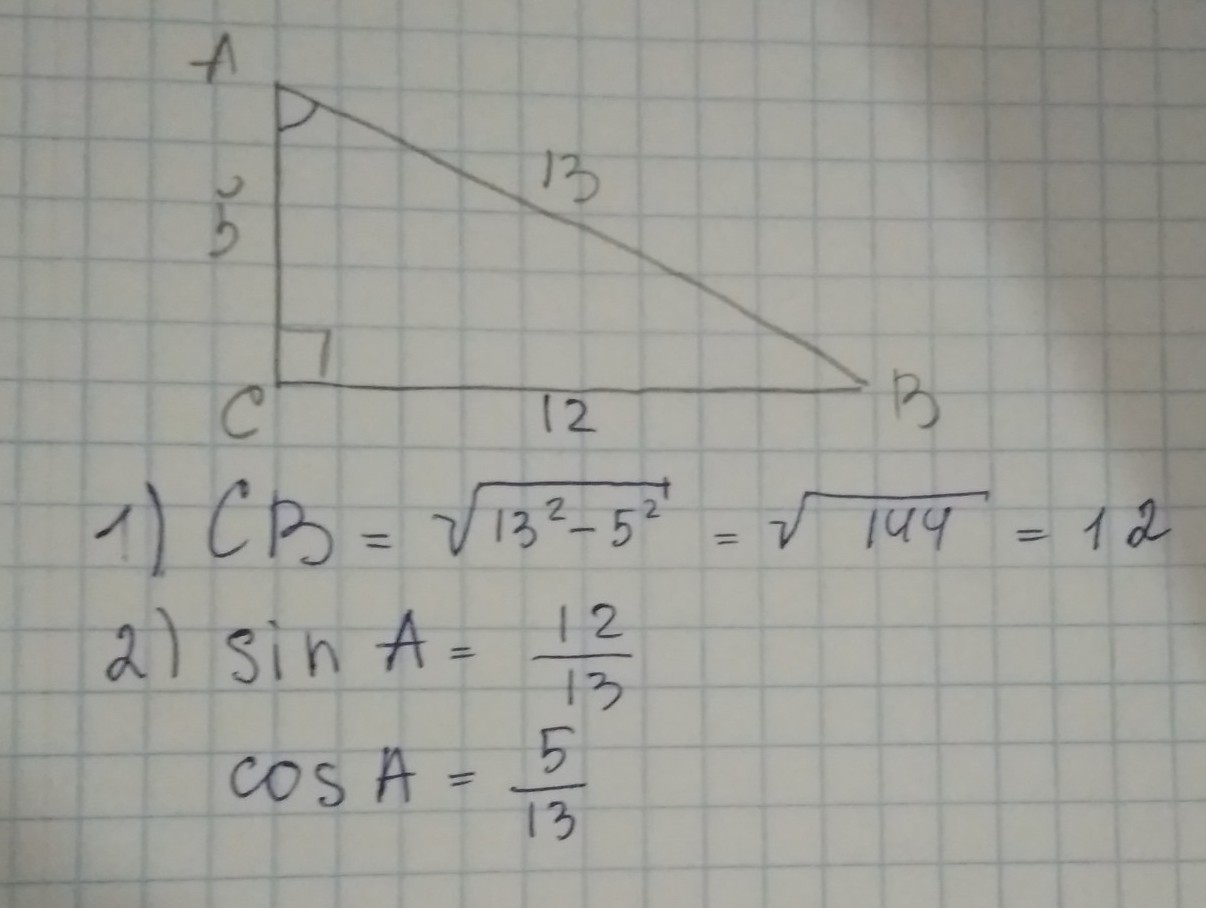 A
13
5
C
12
B
1) CB = √(13² - 5²) = √144 = 12
2) sin A = 12/13
cos A = 5/13